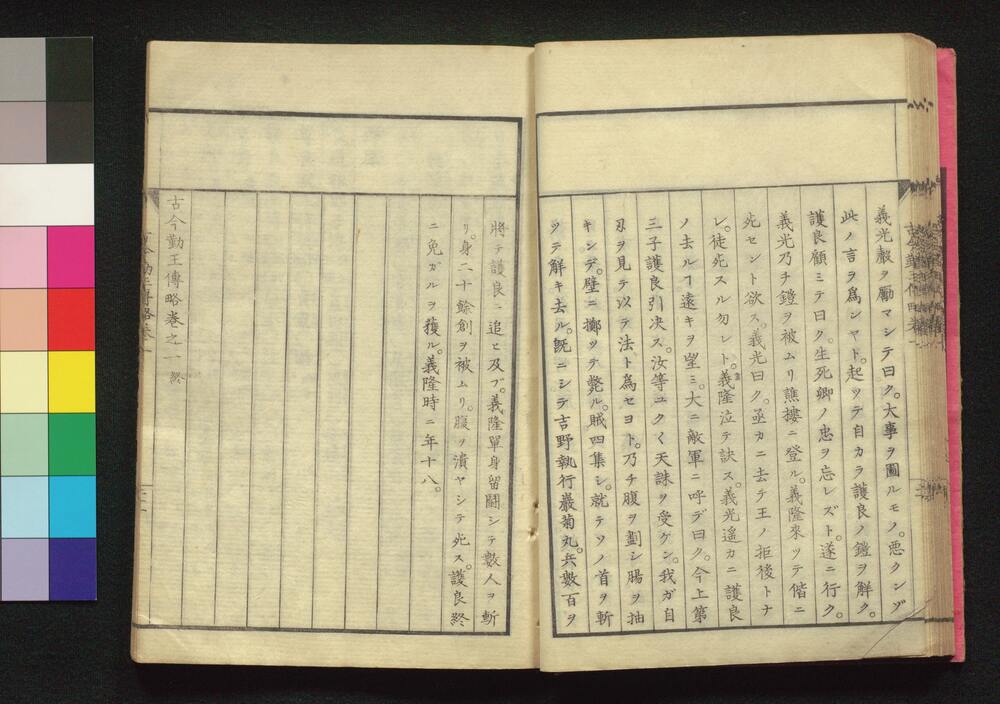 義光聲ヲ勵マシテ曰ク。大事ヲ圖ルモノ。悪クンゾ
此ノ言ヲ爲シヤト。起ツテ自カラ護良ノ鎧ヲ解ク。
護良顧ミテ曰ク。生死卿ノ忠ヲ忘レズト。遂ニ行ク。
義光乃チ鎧ヲ被ムリ譙樓ニ登ル。義隆來ツテ偕ニ
死セント欲ス。義光曰ク。亟カニ去テ王ノ拒後トナ
レ。徒死スル勿レト。義隆泣テ訣ス。義光遥カニ護良
ノ去ルヿ遠キヲ望ミ。大ニ敵軍ニ呼デ曰ク。今上第
三子護良引决ス。汝等ユクく天誅ヲ受ケン。我ガ自
刄ヲ見テ以テ法ト為セヨト。乃チ腹ヲ劃シ膓ヲ抽
キンデ。壁ニ擲ツテ斃ル。賊四集シ。就テソノ首ヲ斬
ツテ解キ去ル。既ニシテ吉野執行巖菊丸。兵數百ヲ
將テ護良ニ追ヒ及ブ。義隆單身留鬪シテ數人ヲ斬
リ。身二十餘創ヲ被ムリ。腹ヲ潰ヤシテ死ス。護良終
ニ免ガルヲ獲ル。義隆時ニ年十八。
古今勤王傳略巻之一 終